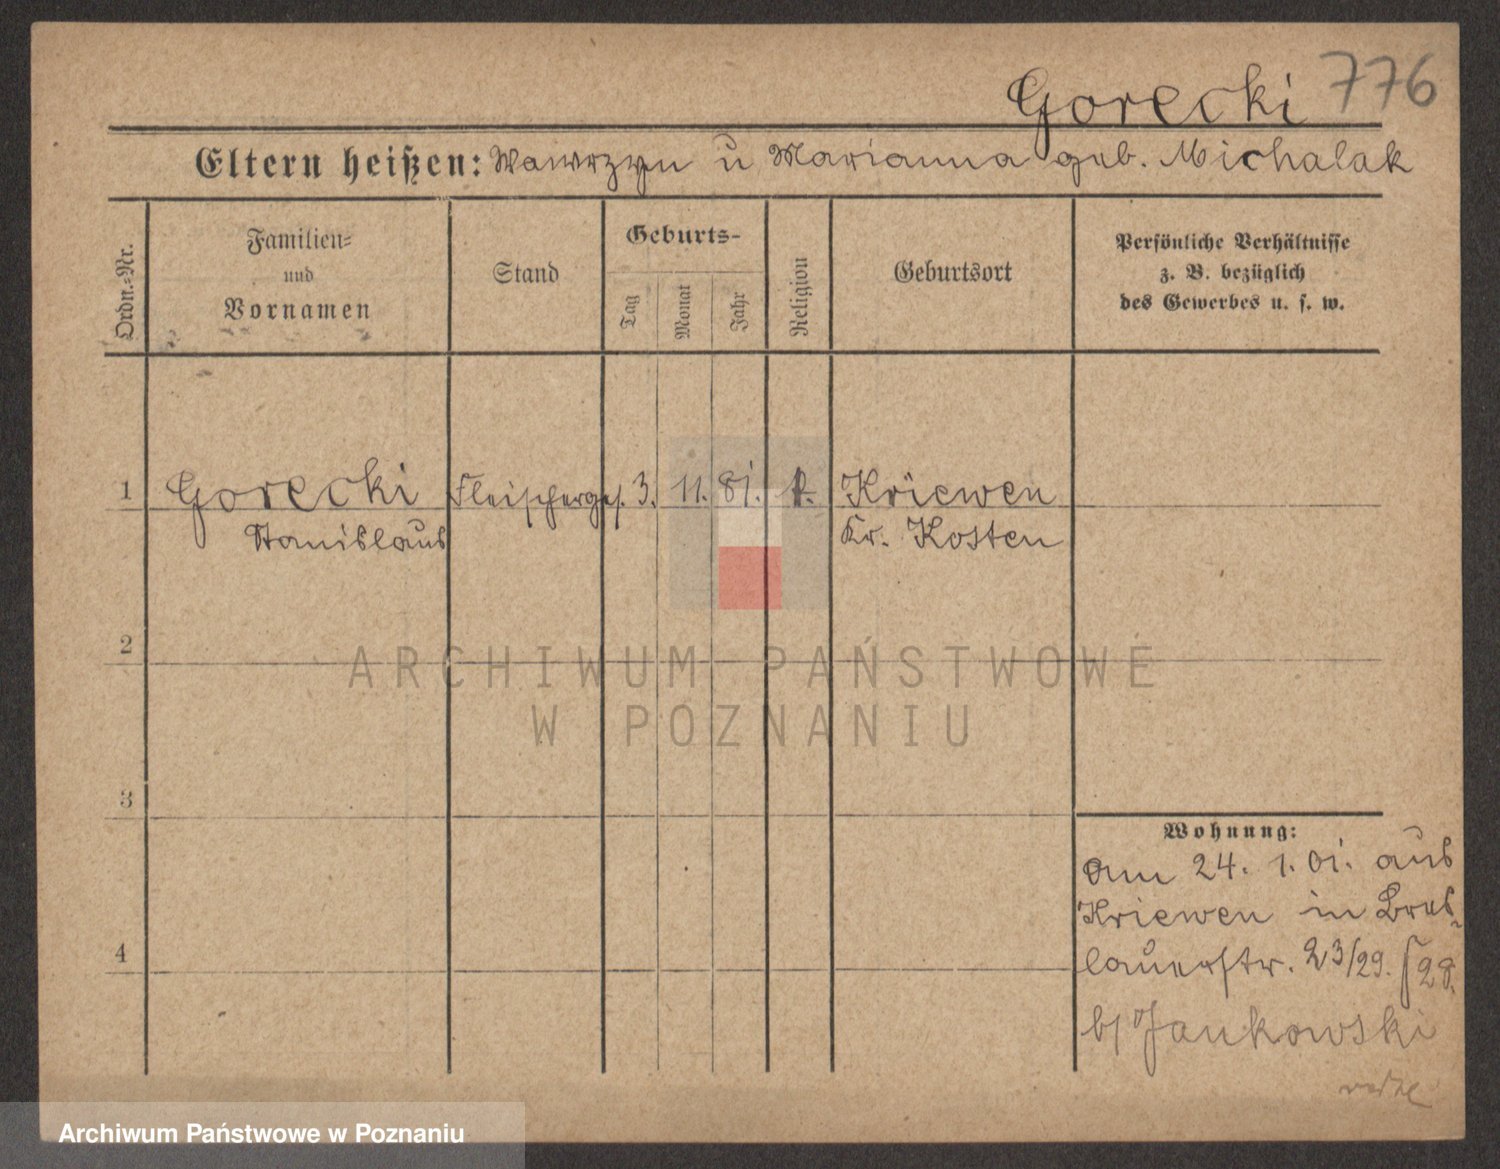 Gorecki 776
Eltern heißen: Wawrzyn u Marianna geb. Michalak
Ordn.-Nr.
Familien-
und
Vornamen
Stand
Geburts-
Tag
Monat
Jahr
Religion
Geburtsort
Persönliche Verhältnisse
z. B. bezüglich
des Gewerbes u. s. w.
1 Gorecki Fleischerges. 3. 11. 81. k. Kriewen
Stanislaus Kr. Kosten
2
3
4
Wohnung:
am 24. 1. 01. aus
Kriewen in Bres-
lauerstr. 23/29. 28.
b/ Jankowski
ARCHIWUM PAŃSTWOWE
W POZNANIU
Archiwum Państwowe w Poznaniu